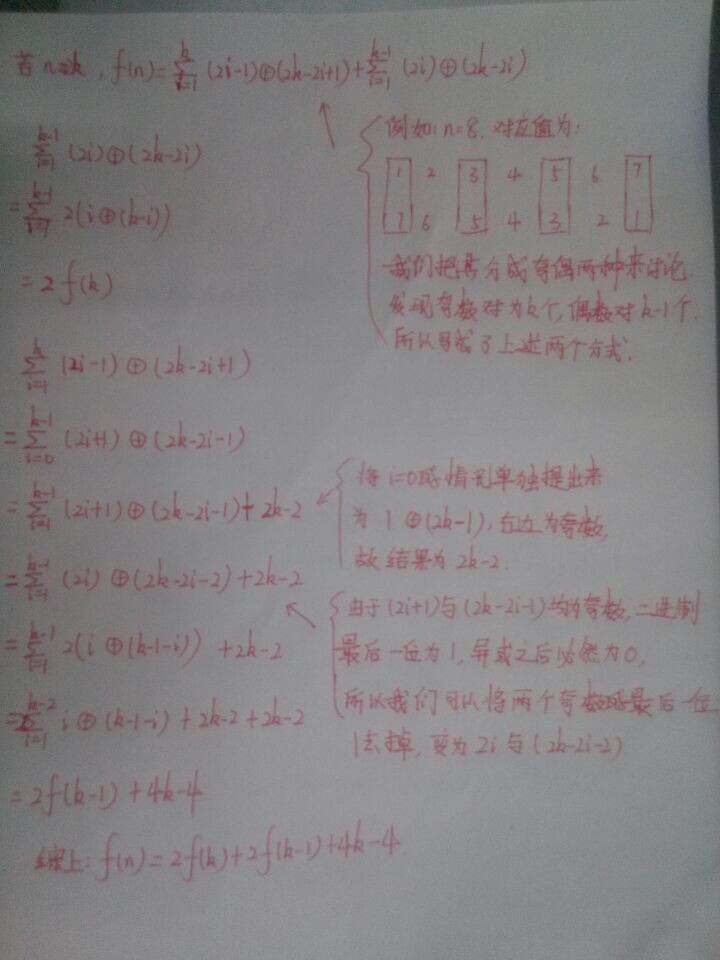 若 n=2k, f(n)=∑_{i=1}^{k} (2i-1)⊕(2k-2i+1)+∑_{i=1}^{k-1} (2i)⊕(2k-2i)
∑_{i=1}^{k-1} (2i)⊕(2k-2i)
=∑_{i=1}^{k-1} 2(i⊕(k-i))
=2f(k)
例如: n=8, 对应值为:
1 2 3 4 5 6 7
7 6 5 4 3 2 1
我们把其分成奇偶两种来讨论.
发现奇数对为k个, 偶数对k-1个.
所以写成了上述两个分式.
∑_{i=1}^{k} (2i-1)⊕(2k-2i+1)
=∑_{i=0}^{k-1} (2i+1)⊕(2k-2i-1)
=∑_{i=1}^{k-1} (2i+1)⊕(2k-2i-1)+2k-2
将i=0的情况单独提出来
为 1⊕(2k-1), 右边为奇数,
故结果为2k-2.
=∑_{i=1}^{k-1} (2i)⊕(2k-2i-2)+2k-2
由于(2i+1)与(2k-2i-1)均为奇数, 二进制
最后一位为1, 异或之后必然为0,
所以我们可以将两个奇数的最后一位
1去掉, 变为2i与(2k-2i-2)
=∑_{i=1}^{k-1} 2(i⊕(k-1-i))+2k-2
=2∑_{i=1}^{k-2} i⊕(k-1-i)+2k-2+2k-2
=2f(k-1)+4k-4
综上: f(n)=2f(k)+2f(k-1)+4k-4.